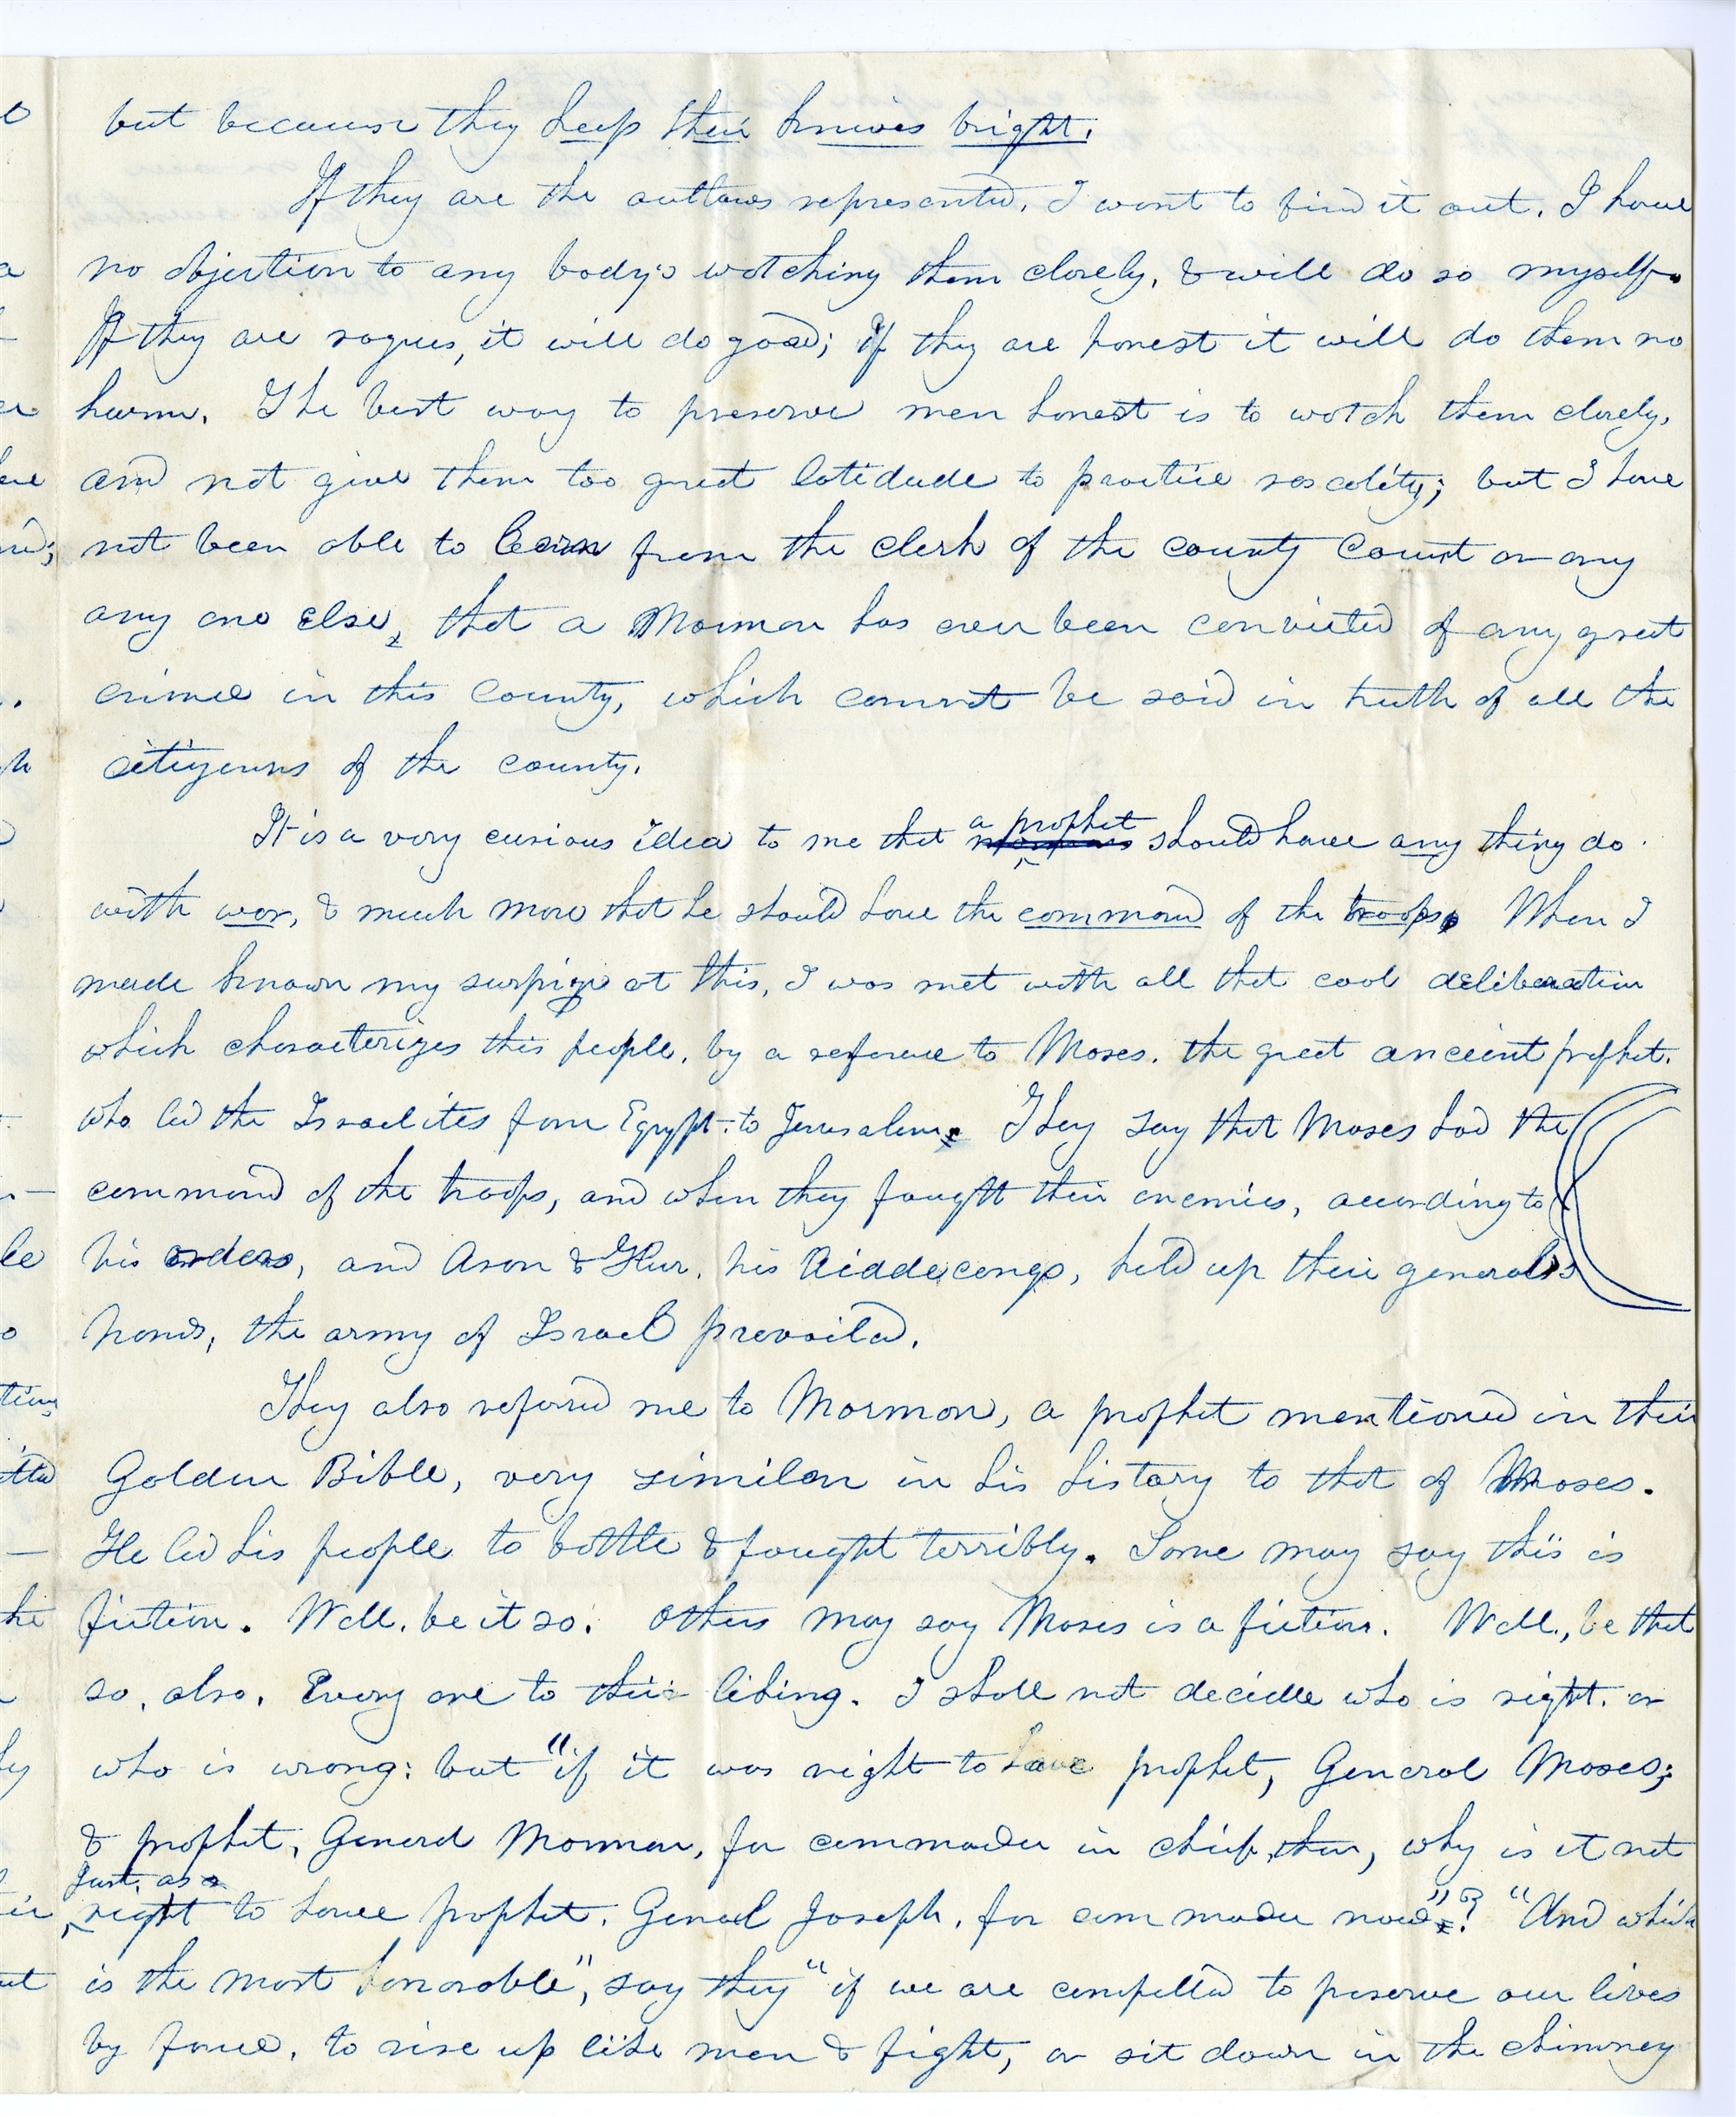 but because they keep their knives bright.
If they are the outlaws represented, I want to find it out. I have
no objection to any body's watching them closely, & will do so myself.
If they are rogues, it will do good; if they are honest it will do them no
harm. The best way to preserve men honest is to watch them closely,
and not give them too great latidude to practice rascality; but I have
not been able to learn from the clerk of the county Court or any
any one else, that a Mormon has ever been convicted of any great
crimee in this County, which cannot be said in truth of all the
citizenns of the county.
It is a very curious idea to me that a prophet should have any thing do
with war, & much more that he should have the command of the troops. When I
made known my surpize at this, I was met with all that cool deliberation
which characterizes this people, by a reference to Moses. the great anceint prophet.
who led the Israelites from Egypt. to Jerusalem. They say that Moses had the
command of the troops, and when they fought their enemies, according to
his orders, and Aron & Hur, his Aiddecongs, held up their general's
hands, the army of Israel prevailed.
They also referred me to Mormon, a prophet mentioned in their
Golden Bible, very similar in his history to that of Moses.
He led his people to battle & fought terribly. Some may say this is
fiction. Well, be it so. Others may say Moses is a fiction. Well, be that
so, also. Every one to their liking. I shall not decidle who is right. or
who is wrong: but "if it was right to have prophet, General Moses;
& prophet, General Mormon, for commader in chief, then, why is it not
Just as
right to have prophet. Genral Joseph, for commader now"? "And which
is the most honorable", say they "if we are compelled to preserve our lives
by force, to rise up like men & fight, or sit down in the chimney